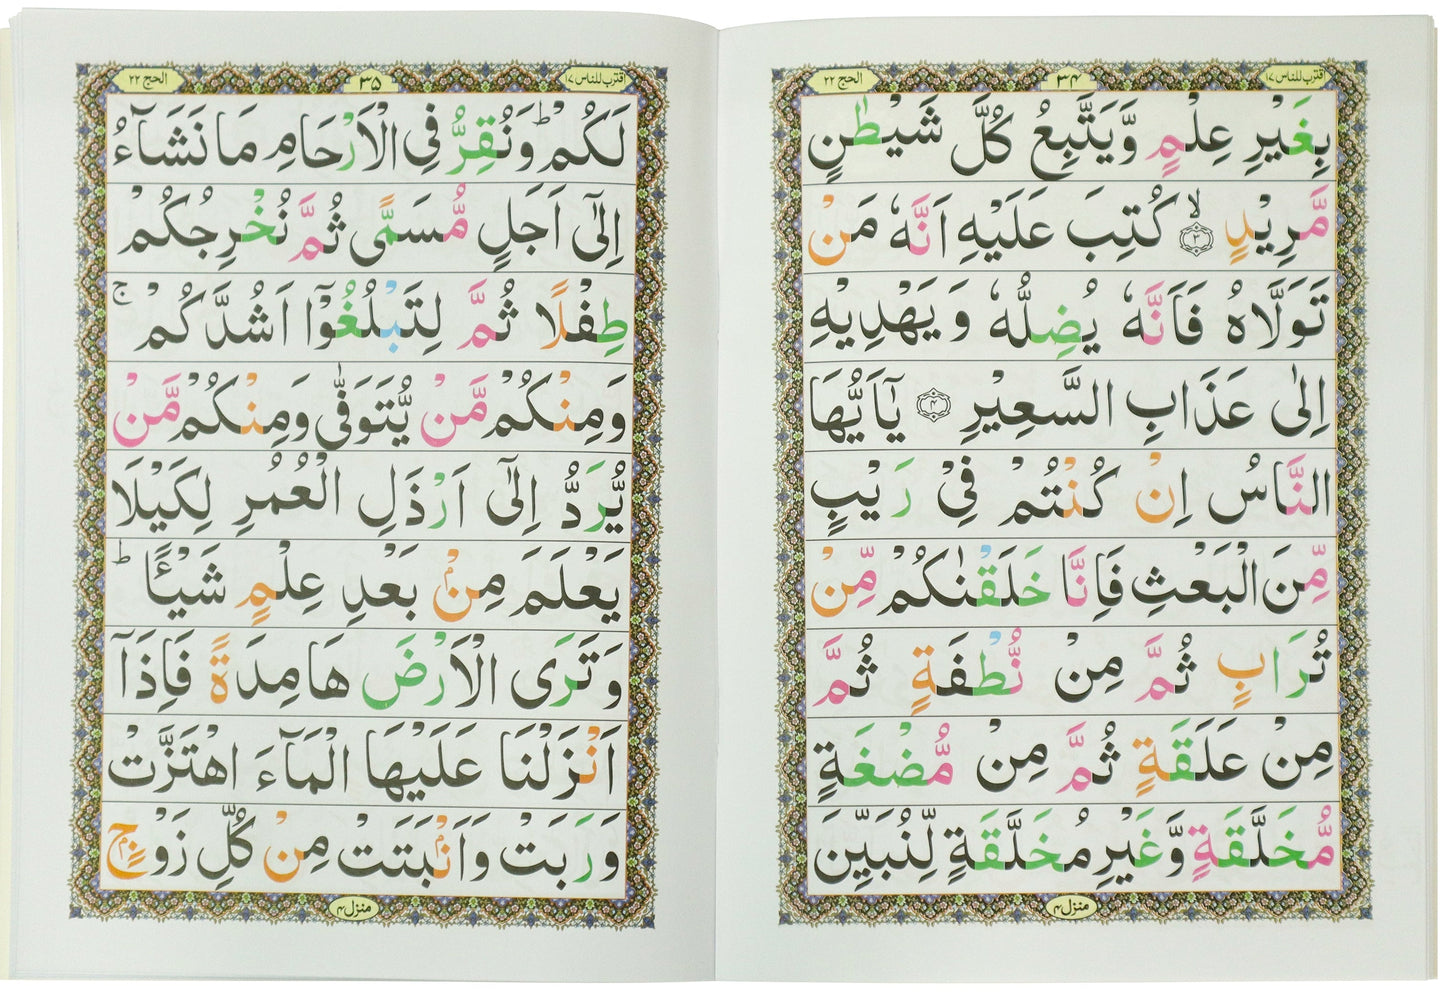 اقترب للناس ۱۷
۳۴
الحج ۲۲
بِغَیْرِ عِلْمٍ وَّیَتَّبِعُ كُلَّ شَیْطٰنٍ
مَّرِیْدٍ ۙ﴿۳﴾ كُتِبَ عَلَیْهِ اَنَّهٗ مَنْ
تَوَلَّاهُ فَاَنَّهٗ یُضِلُّهٗ وَیَهْدِیْهِ
اِلٰی عَذَابِ السَّعِیْرِ ﴿۴﴾ یٰۤاَیُّهَا
النَّاسُ اِنْ كُنْتُمْ فِیْ رَیْبٍ
مِّنَ الْبَعْثِ فَاِنَّا خَلَقْنٰكُمْ مِّنْ
تُرَابٍ ثُمَّ مِنْ نُّطْفَةٍ ثُمَّ
مِنْ عَلَقَةٍ ثُمَّ مِنْ مُّضْغَةٍ
مُّخَلَّقَةٍ وَّغَیْرِ مُخَلَّقَةٍ لِّنُبَیِّنَ
منزل ۴
اقترب للناس ۱۷
۳۵
الحج ۲۲
لَكُمْ ؕ وَنُقِرُّ فِی الْاَرْحَامِ مَا نَشَآءُ
اِلٰۤی اَجَلٍ مُّسَمًّی ثُمَّ نُخْرِجُكُمْ
طِفْلًا ثُمَّ لِتَبْلُغُوْۤا اَشُدَّكُمْ ۚ
وَمِنْكُمْ مَّنْ یُّتَوَفّٰی وَمِنْكُمْ مَّنْ
یُّرَدُّ اِلٰۤی اَرْذَلِ الْعُمُرِ لِكَیْلَا
یَعْلَمَ مِنْۢ بَعْدِ عِلْمٍ شَیْـًٔا ؕ
وَتَرَی الْاَرْضَ هَامِدَةً فَاِذَاۤ
اَنْزَلْنَا عَلَیْهَا الْمَآءَ اهْتَزَّتْ
وَرَبَتْ وَاَنْۢبَتَتْ مِنْ كُلِّ زَوْجٍۭ
منزل ۴